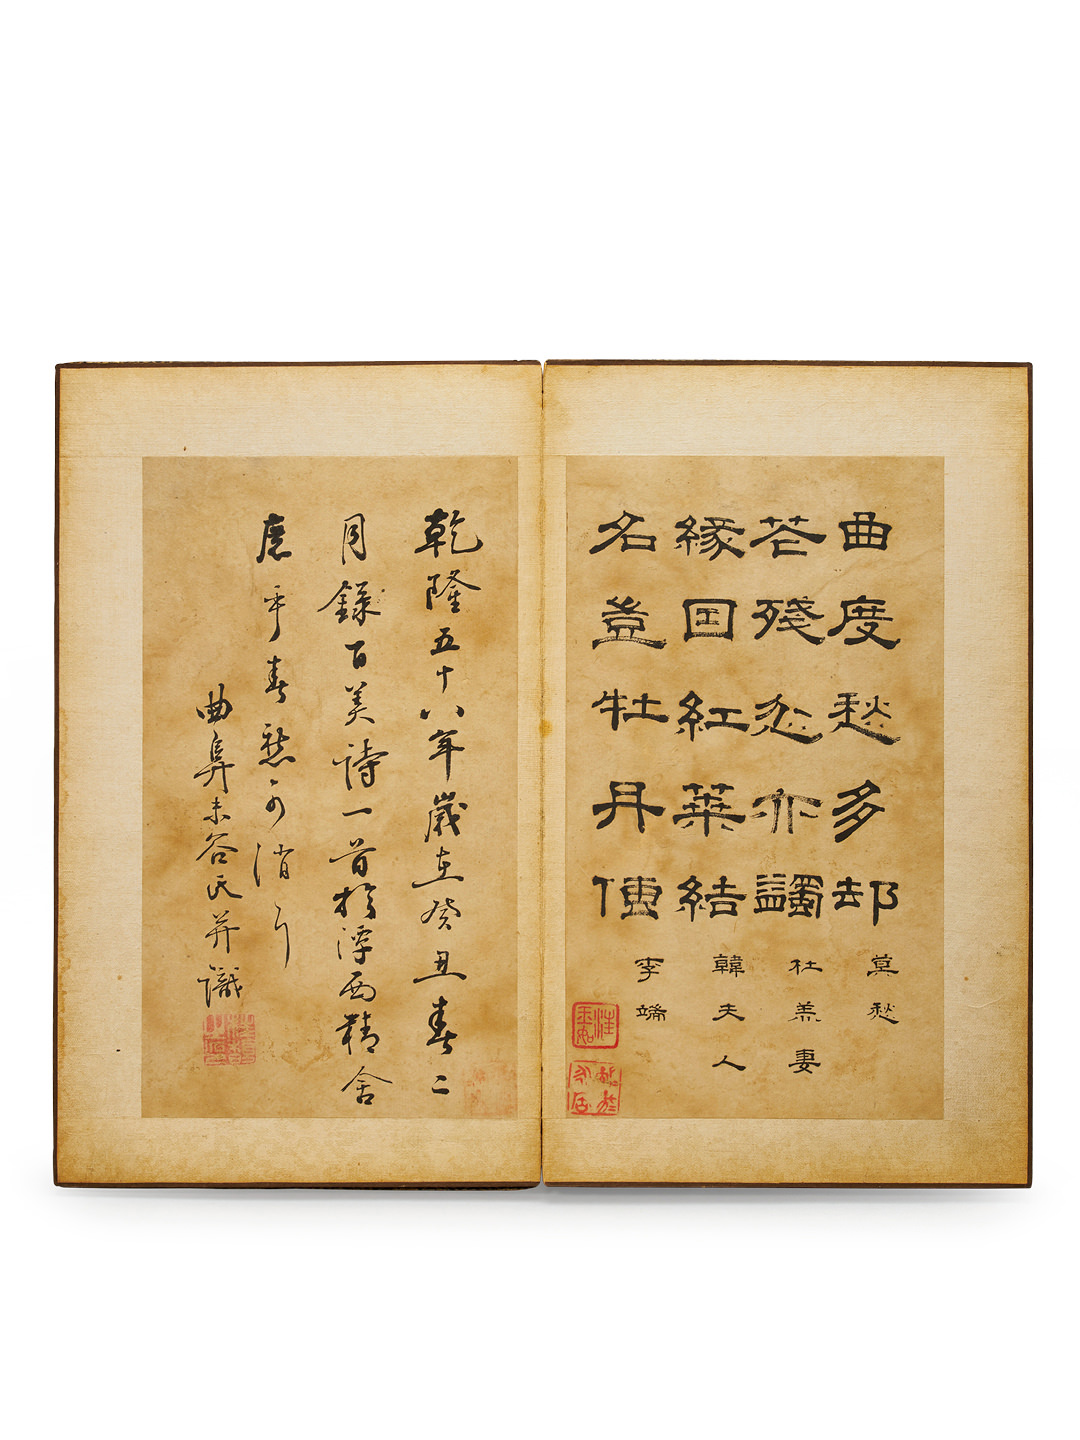 曲度愁多却 莫愁
花殘忿亦蠲 杜羔妻
緣因紅葉結 韓夫人
名豈牡丹傳 李端
乾隆五十八年歲在癸丑春二
月錄百美詩一首於潭西精舍
庶乎春愁可消耳
曲阜未谷氏并識